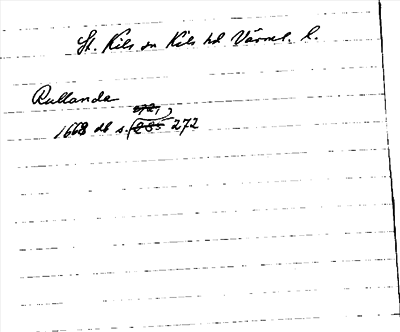 St. Kils sn Kils hd Värml. l.
Rullanda
1668 db s. 272